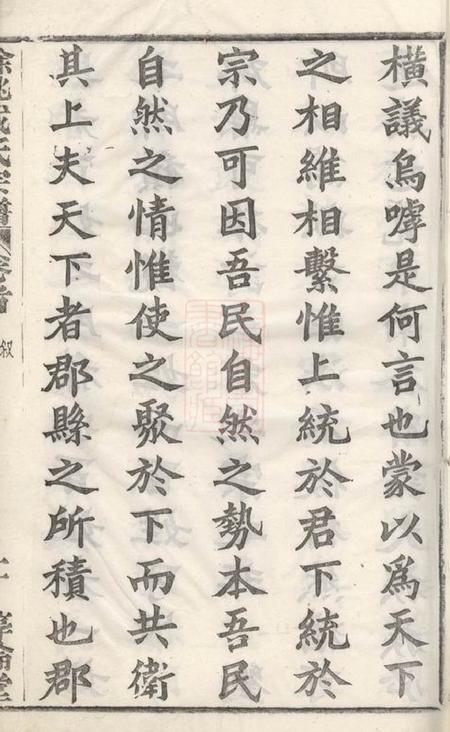 橫議烏嘑是何言也蒙以爲天下
之相維相繫惟上統於君下統於
宗乃可因吾民自然之勢本吾民
自然之情惟使之聚於下而共衛
其上夫天下者郡縣之所積也郡
氏宗譜
卷首
敘